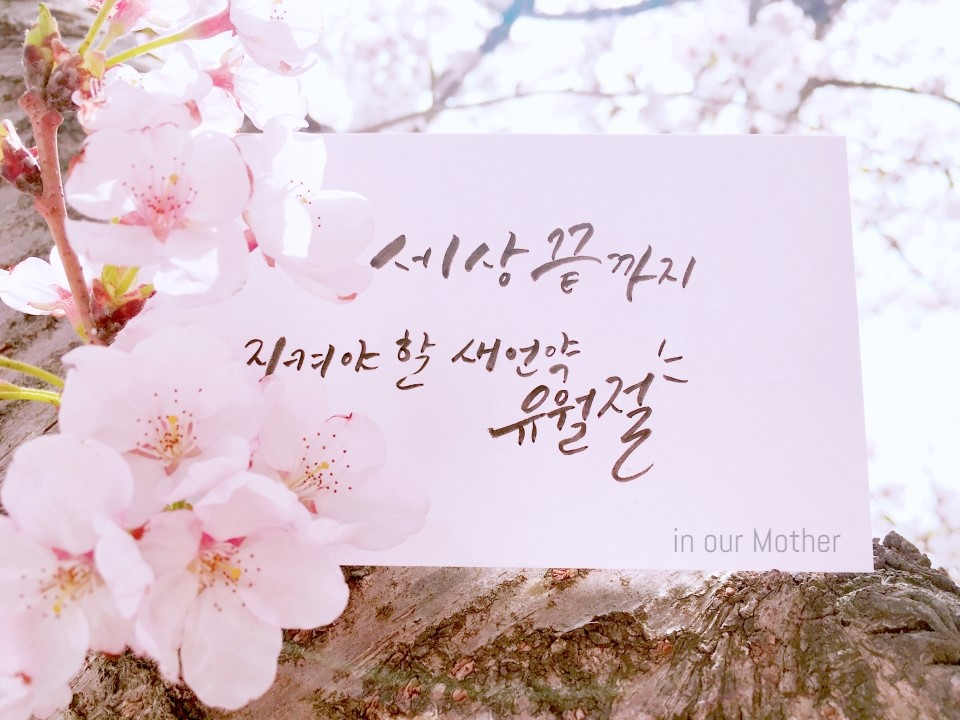 세상끝까지
지켜야 할 새언약
유월절
in our Mother